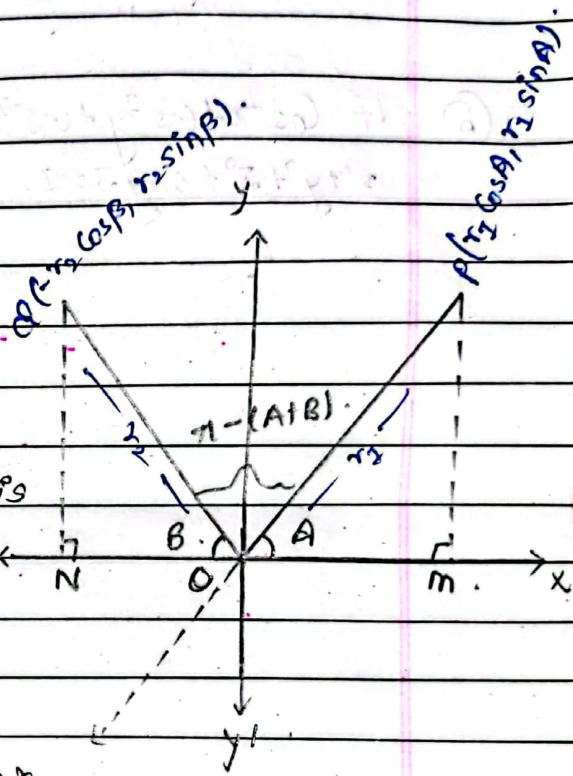 Q(-r₂ Cosβ, r₂ sinβ).
P(r₁ CosA, r₁ sinA).
y
π-(A+B).
r₂
r₁
is
B.
A
N
O
m.
x
y'